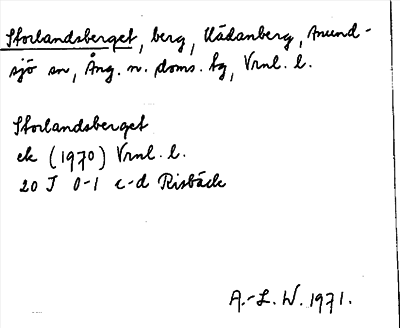 Storlandsberget, berg, Kådanberg, Anund-
sjö sn, Ång. n. doms. tg, Vrnl. l.
Storlandsberget
ek (1970) Vrnl. l.
20 J 0-1 c-d Risbäck
A.-L. W. 1971.